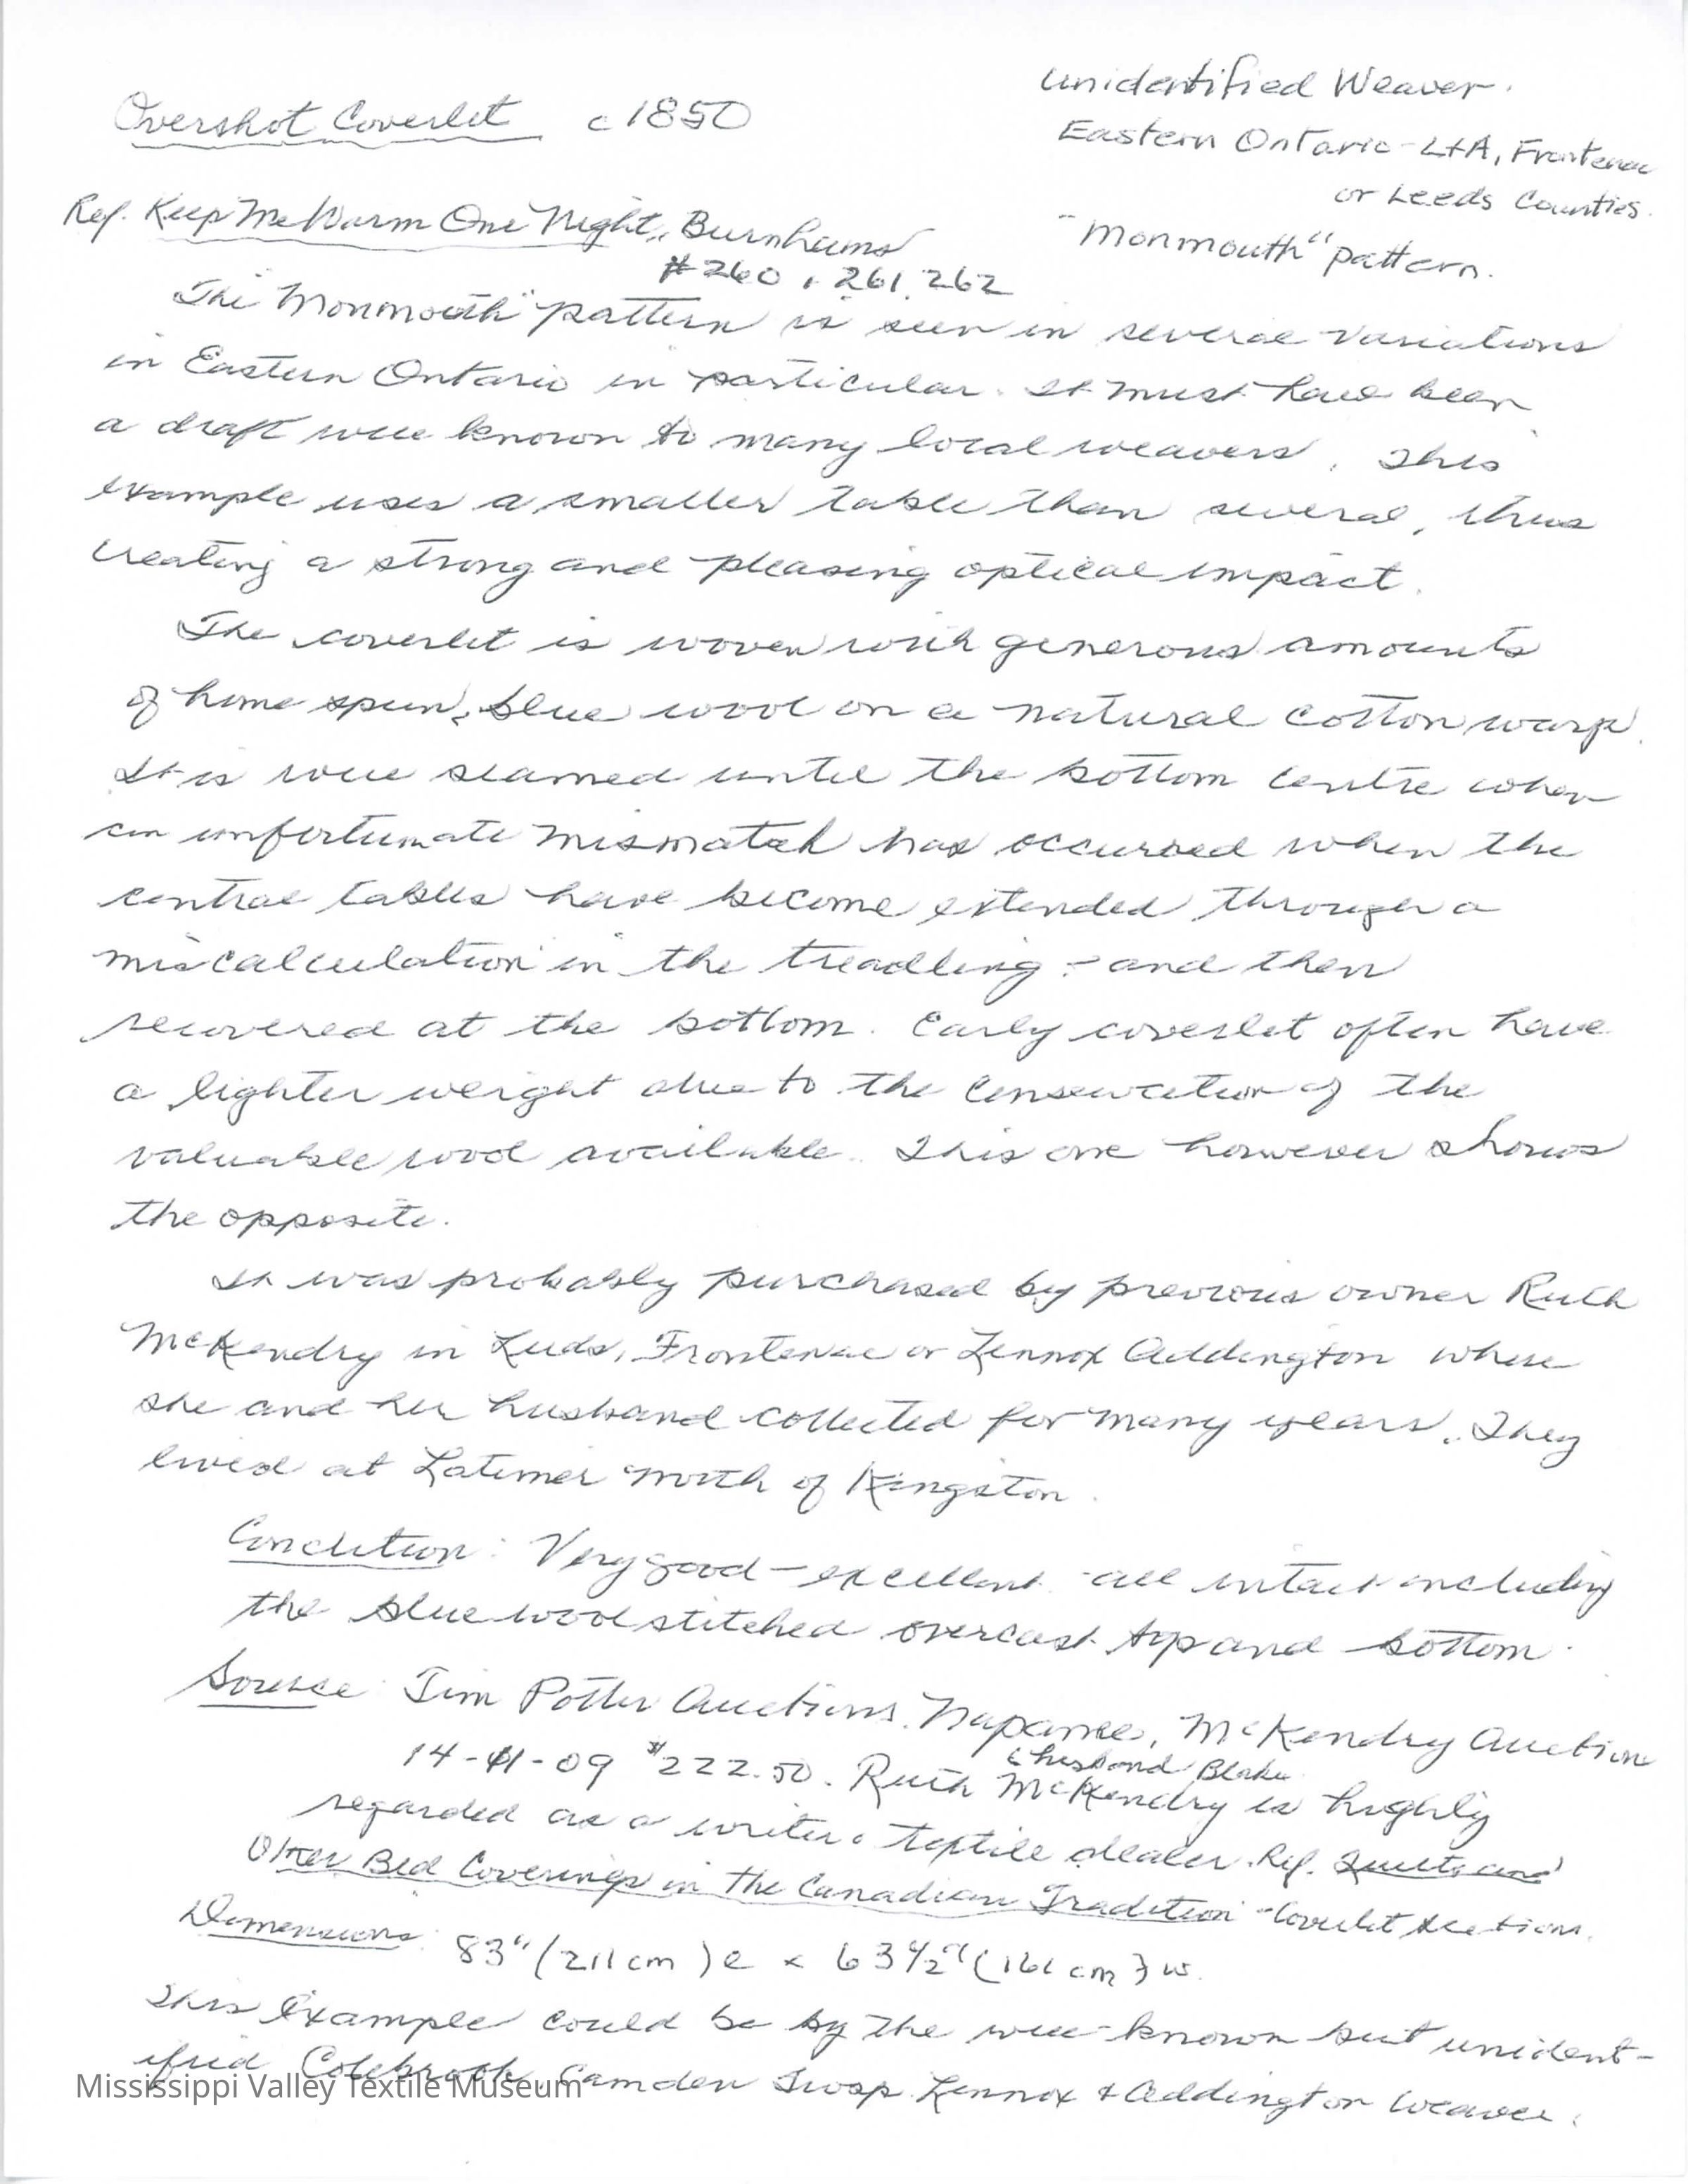 Overshot Coverlet c 1850
Unidentified Weaver.
Eastern Ontario - L+A, Frontenac
or Leeds Counties.
"Monmouth" pattern.
Ref. Keep Me Warm One Night, Burnhams
#260, 261, 262
The "Monmouth" pattern is seen in several variations
in Eastern Ontario in particular. It must have been
a draft well known to many local weavers. This
example uses a smaller table than several, thus
creating a strong and pleasing optical impact.
The coverlet is woven with generous amounts
of home spun, blue wool on a natural cotton warp.
It is well seamed until the bottom centre when
an unfortunate mismatch has occurred when the
central tables have become extended through a
miscalculation in the treadling - and then
recovered at the bottom. Early coverlet often have
a lighter weight due to the conservation of the
valuable wool available. This one however shows
the opposite.
It was probably purchased by previous owner Ruth
McKendry in Leeds, Frontenac or Lennox Addington where
she and her husband collected for many years. They
lived at Latimer north of Kingston.
Condition: Very good - excellent - all intact including
the blue wool stitched overcast top and bottom.
Source Jim Potter Auctions, Napanee, McKendry Auction
& husband Blake
14-11-09 $222.50. Ruth McKendry is highly
regarded as a writer & textile dealer. Ref. Quilts and
Other Bed Coverings in the Canadian Tradition - Coverlet Section.
Dimensions: 83" (211 cm) l x 63 1/2" (161 cm) w.
This example could be by the well-known but unident-
ified Colebrook, Camden Twsp. Lennox & Addington Weaver.
Mississippi Valley Textile Museum